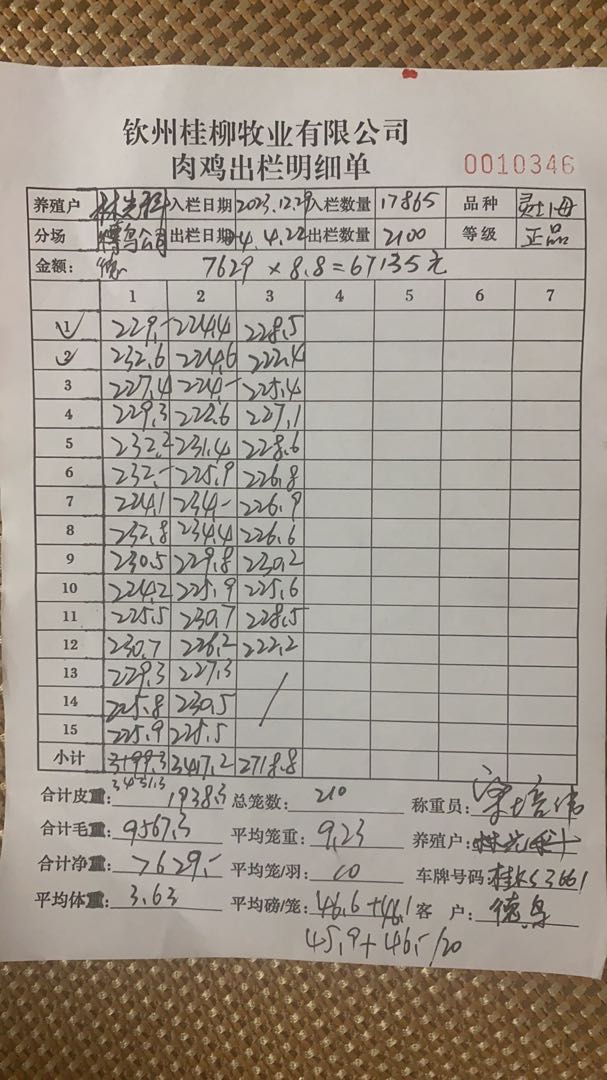 钦州桂柳牧业有限公司
肉鸡出栏明细单
0010346
养殖户 林光科 入栏日期 2023.12.29 入栏数量 17865 品种
分场 出栏日期 4.4.22 出栏数量 2100 等级 正品
金额: 7629 × 8.8 = 67135元
1 2 3 4 5 6 7
1 229,- 224.4 228.5
2 232.6 224.6 222.4
3 227.4 224,- 225.4
4 229.3 222.6 227.1
5 232.2 231.4 228.6
6 232,- 225.9 226.8
7 224.1 234,- 226.9
8 232.8 234.4 226.6
9 230.5 229.8 230.2
10 224.2 225.9 225.6
11 225.5 230.7 228.5
12 230.7 226.2 222.2
13 229.3 227.3
14 225.8 230.5
15 225.9 225.5
小计 3417.2 2718.8
3431.3
合计皮重: 1938.3 总笼数: 210 称重员: 梁培伟
合计毛重: 9567.3 平均笼重: 9.23 养殖户:
合计净重: 7629,- 平均笼/羽: 10 车牌号码:
平均体重: 3.63 平均磅/笼: 46.6 + 46.1 客 户:
45.9 + 46,- /20